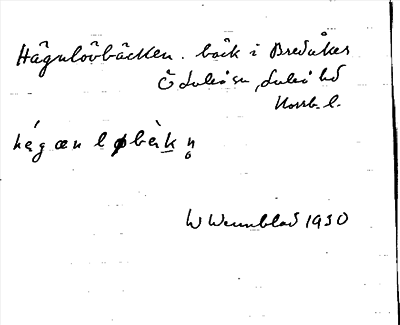 Hägnlövbäcken. bäck i Bredåker
Ö Luleå sn, Luleå hd
Norrb. l.
hę́g æn l ø bὲkn̥
W Wennblad 1930